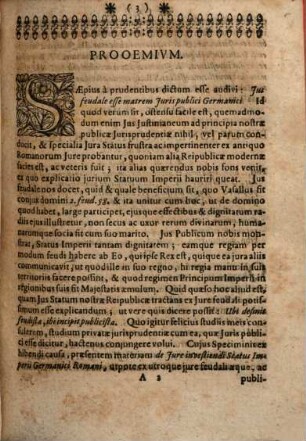 ( 3. )
PROOEMIVM.
SÆpius à prudentibus dictum esse audivi: Jus
feudale esse matrem Juris publici Germanici Id
quod verum sit, ostensu facile est, quemadmo-
dum enim Jus Justinianeum ad principia nostræ
publicæ Jurisprudentiæ nihil, vel parum con-
ducit, & specialia Jura Status frustra ac impertinenter ex antiquo
Romanorum Jure probantur, quoniam alia Reipublicæ modernæ
facies est, ac veteris fuit; ita alia quærendus nobis fons venit,
ex quo explicatio jurium Statuum Imperii hauriri queat. Jus
feudale nos docet, quid & quale beneficium sit, quo Vasallus sit
conjux domini 2. feud. 58. & intuitu cum hoc, ut de domino
quod habet, large participes, ejusque effectibus & dignitatum ra-
diis ejus illustretur, non secus ac uxor rerum divinarum, huma-
narumque socia sit cum suo marito. Jus Publicum nobis mon-
strat, Status Imperii tantam dignitatem; eamque regiam per
modum feudi habere ab Eo, quipse Rex est, quique ea jura aliis
communicavit, ut quodille in suo regno, hi regni manu in suis
territoriis facere possint, & quod regimen Principum Imperii in
regionibus suis fit sit Majestatis æmulum. Quid quæso hoc aliud est,
quam Jus Statuum nostræ Reipublicæ tractans ex Jure feudali potis-
simum esse explicandum; ut vere quis dicere possit: Ubi desinit
feudista, ibi incipit publicista. Quo igitur felicius studiis meis con-
sulerem, studium privatæ jurisprudentiæ cum ea, quæ Juris publi-
ci esse dicitur, hactenus conjungere volui. Cujus Speciminis ex-
hibendi causa, præsentem materiam de Jure investiendi Status Im-
perii Germanici Romani, utpote ex utroque jure feudali æque, ac
A 2 publi-